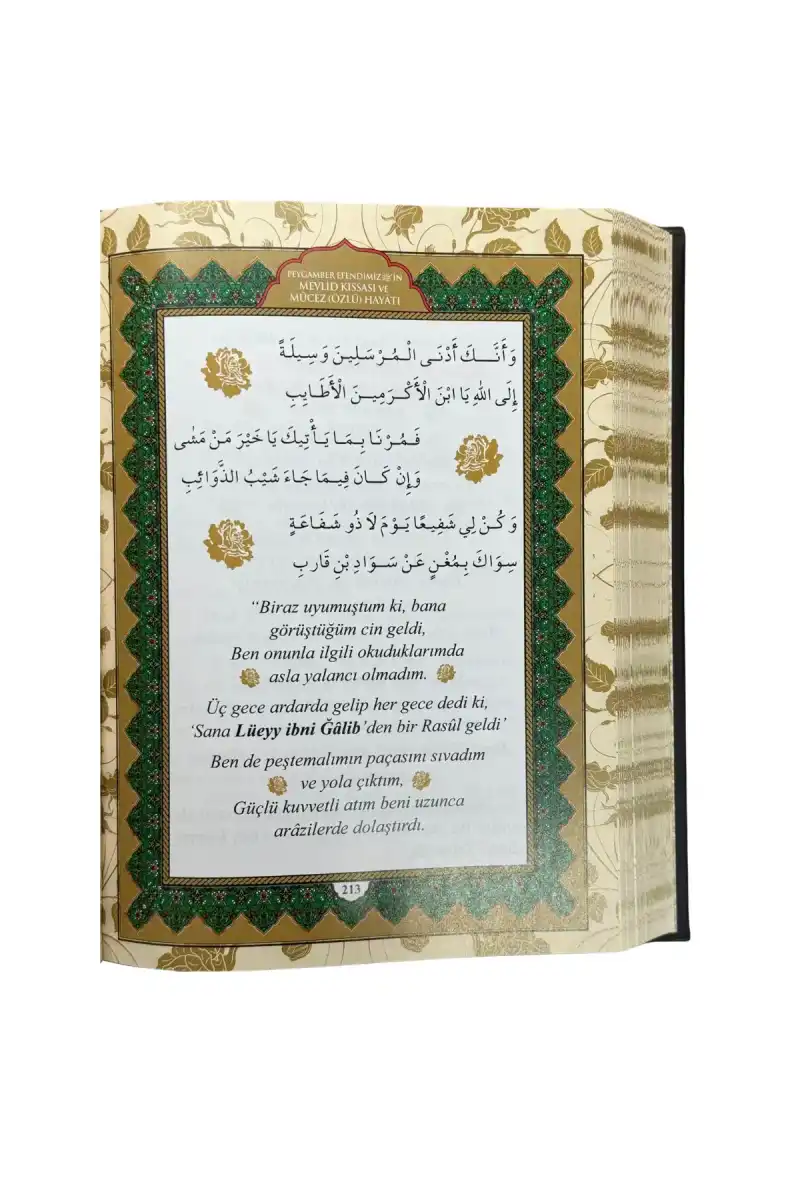 PEYGAMBER EFENDİMİZ ﷺ'İN
MEVLİD KISSASI VE
MÛCEZ (ÖZLÜ) HAYATI
وَأَنَّكَ أَدْنَى الْمُرْسَلِينَ وَسِيلَةً
إِلَى اللهِ يَا ابْنَ الْأَكْرَمِينَ الْأَطَايِبِ
فَمُرْنَا بِمَا يَأْتِيكَ يَا خَيْرَ مَنْ مَشٰى
وَإِنْ كَانَ فِيمَا جَاءَ شَيْبُ الذَّوَائِبِ
وَكُنْ لِي شَفِيعًا يَوْمَ لَا ذُو شَفَاعَةٍ
سِوَاكَ بِمُغْنٍ عَنْ سَوَادِ بْنِ قَارِبِ
“Biraz uyumuştum ki, bana
görüştüğüm cin geldi,
Ben onunla ilgili okuduklarımda
asla yalancı olmadım.
Üç gece ardarda gelip her gece dedi ki,
‘Sana Lüeyy ibni Ğâlib’den bir Rasûl geldi’
Ben de peştemalımın paçasını sıvadım
ve yola çıktım,
Güçlü kuvvetli atım beni uzunca
arâzilerde dolaştırdı.
213